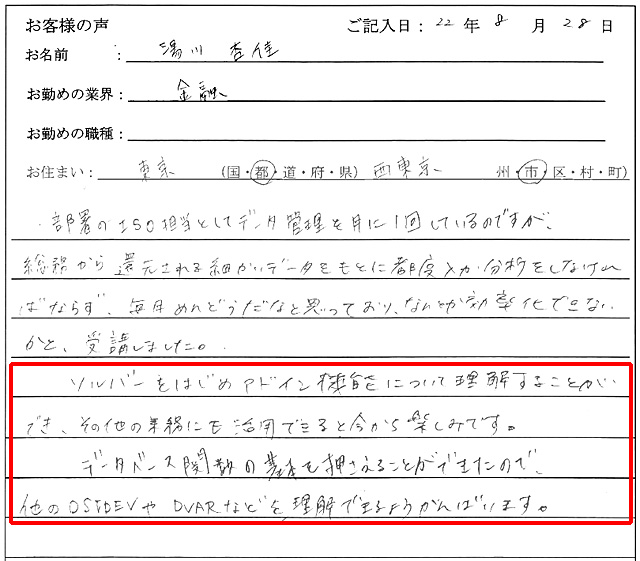 お客様の声 ご記入日：22 年 8 月 28 日
お名前 ： 湯川 杏佳
お勤めの業界： 金融
お勤めの職種：
お住まい： 東京 （国・都・道・府・県） 西東京 州・市・区・村・町）
部署のISO担当としてデータ管理を月に1回しているのですが、
総務から還元される細かいデータをもとに都度入力分析をしなけれ
ばならず、毎月めんどうだなと思っており、なんとか効率化できない
かと、受講しました。
ソルバーをはじめアドイン機能について理解することが
でき、その他の業務にも活用できると今から楽しみです。
データベース関数の基本を押さえることができたので、
他のDSTDEVやDVARなどを理解できるようがんばいます。